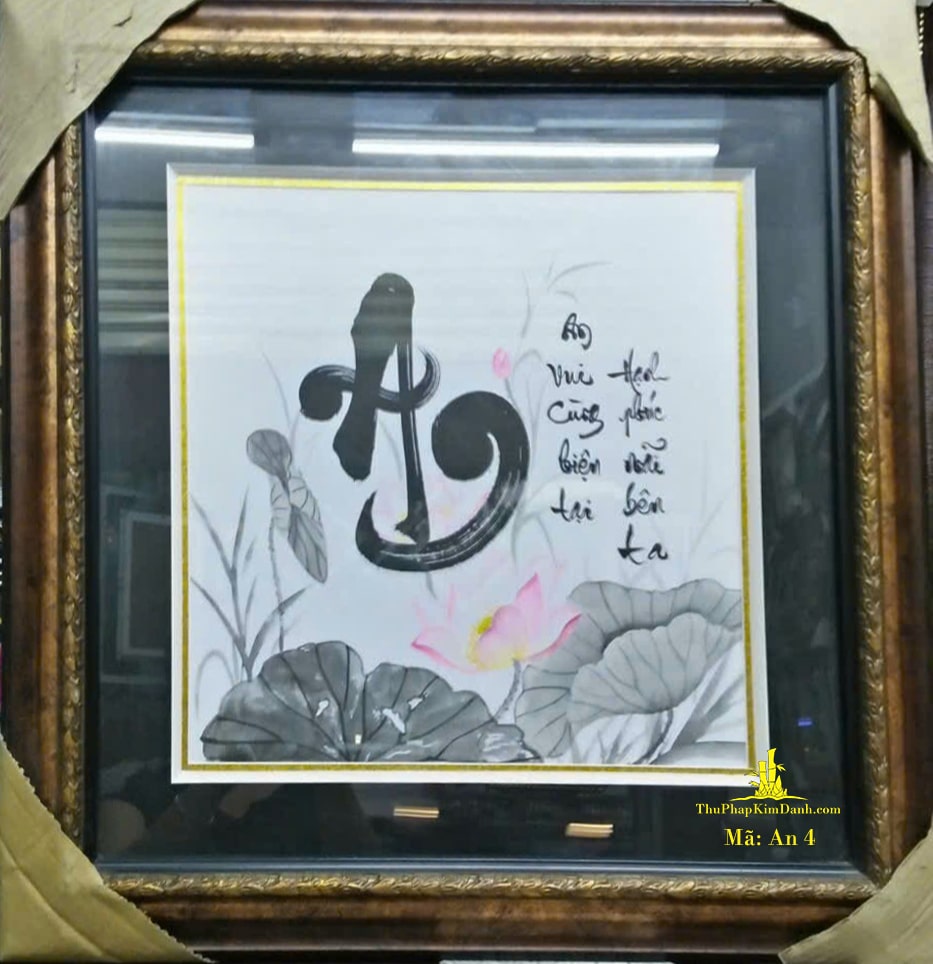 An
An
vui
cùng
hiện
tại
Hạnh
phúc
mãi
bên
ta
ThuPhapKimDanh.com
Mã: An 4